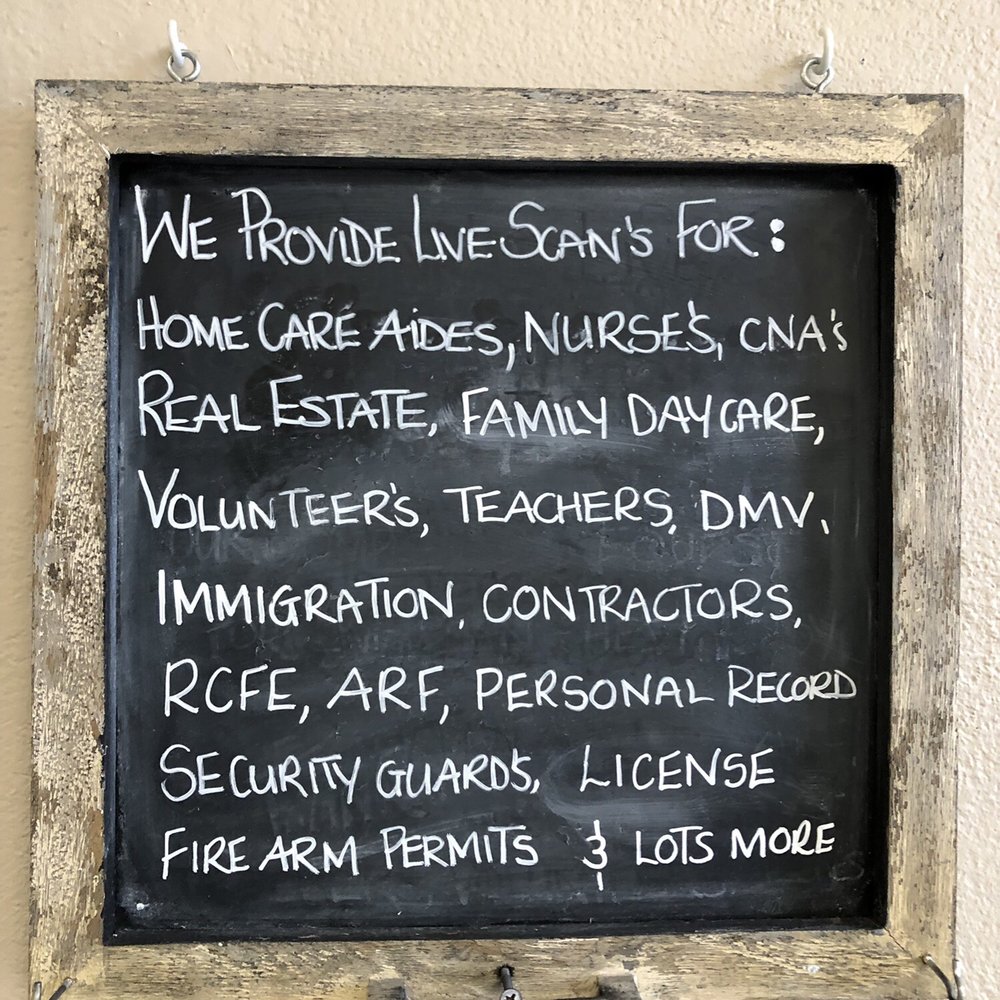 WE PROVIDE LIVE SCAN'S FOR:
HOME CARE AIDES, NURSE'S, CNA'S
REAL ESTATE, FAMILY DAYCARE,
VOLUNTEER'S, TEACHERS, DMV,
IMMIGRATION, CONTRACTORS,
RCFE, ARF, PERSONAL RECORD
SECURITY GUARD'S, LICENSE
FIRE ARM PERMITS & LOTS MORE